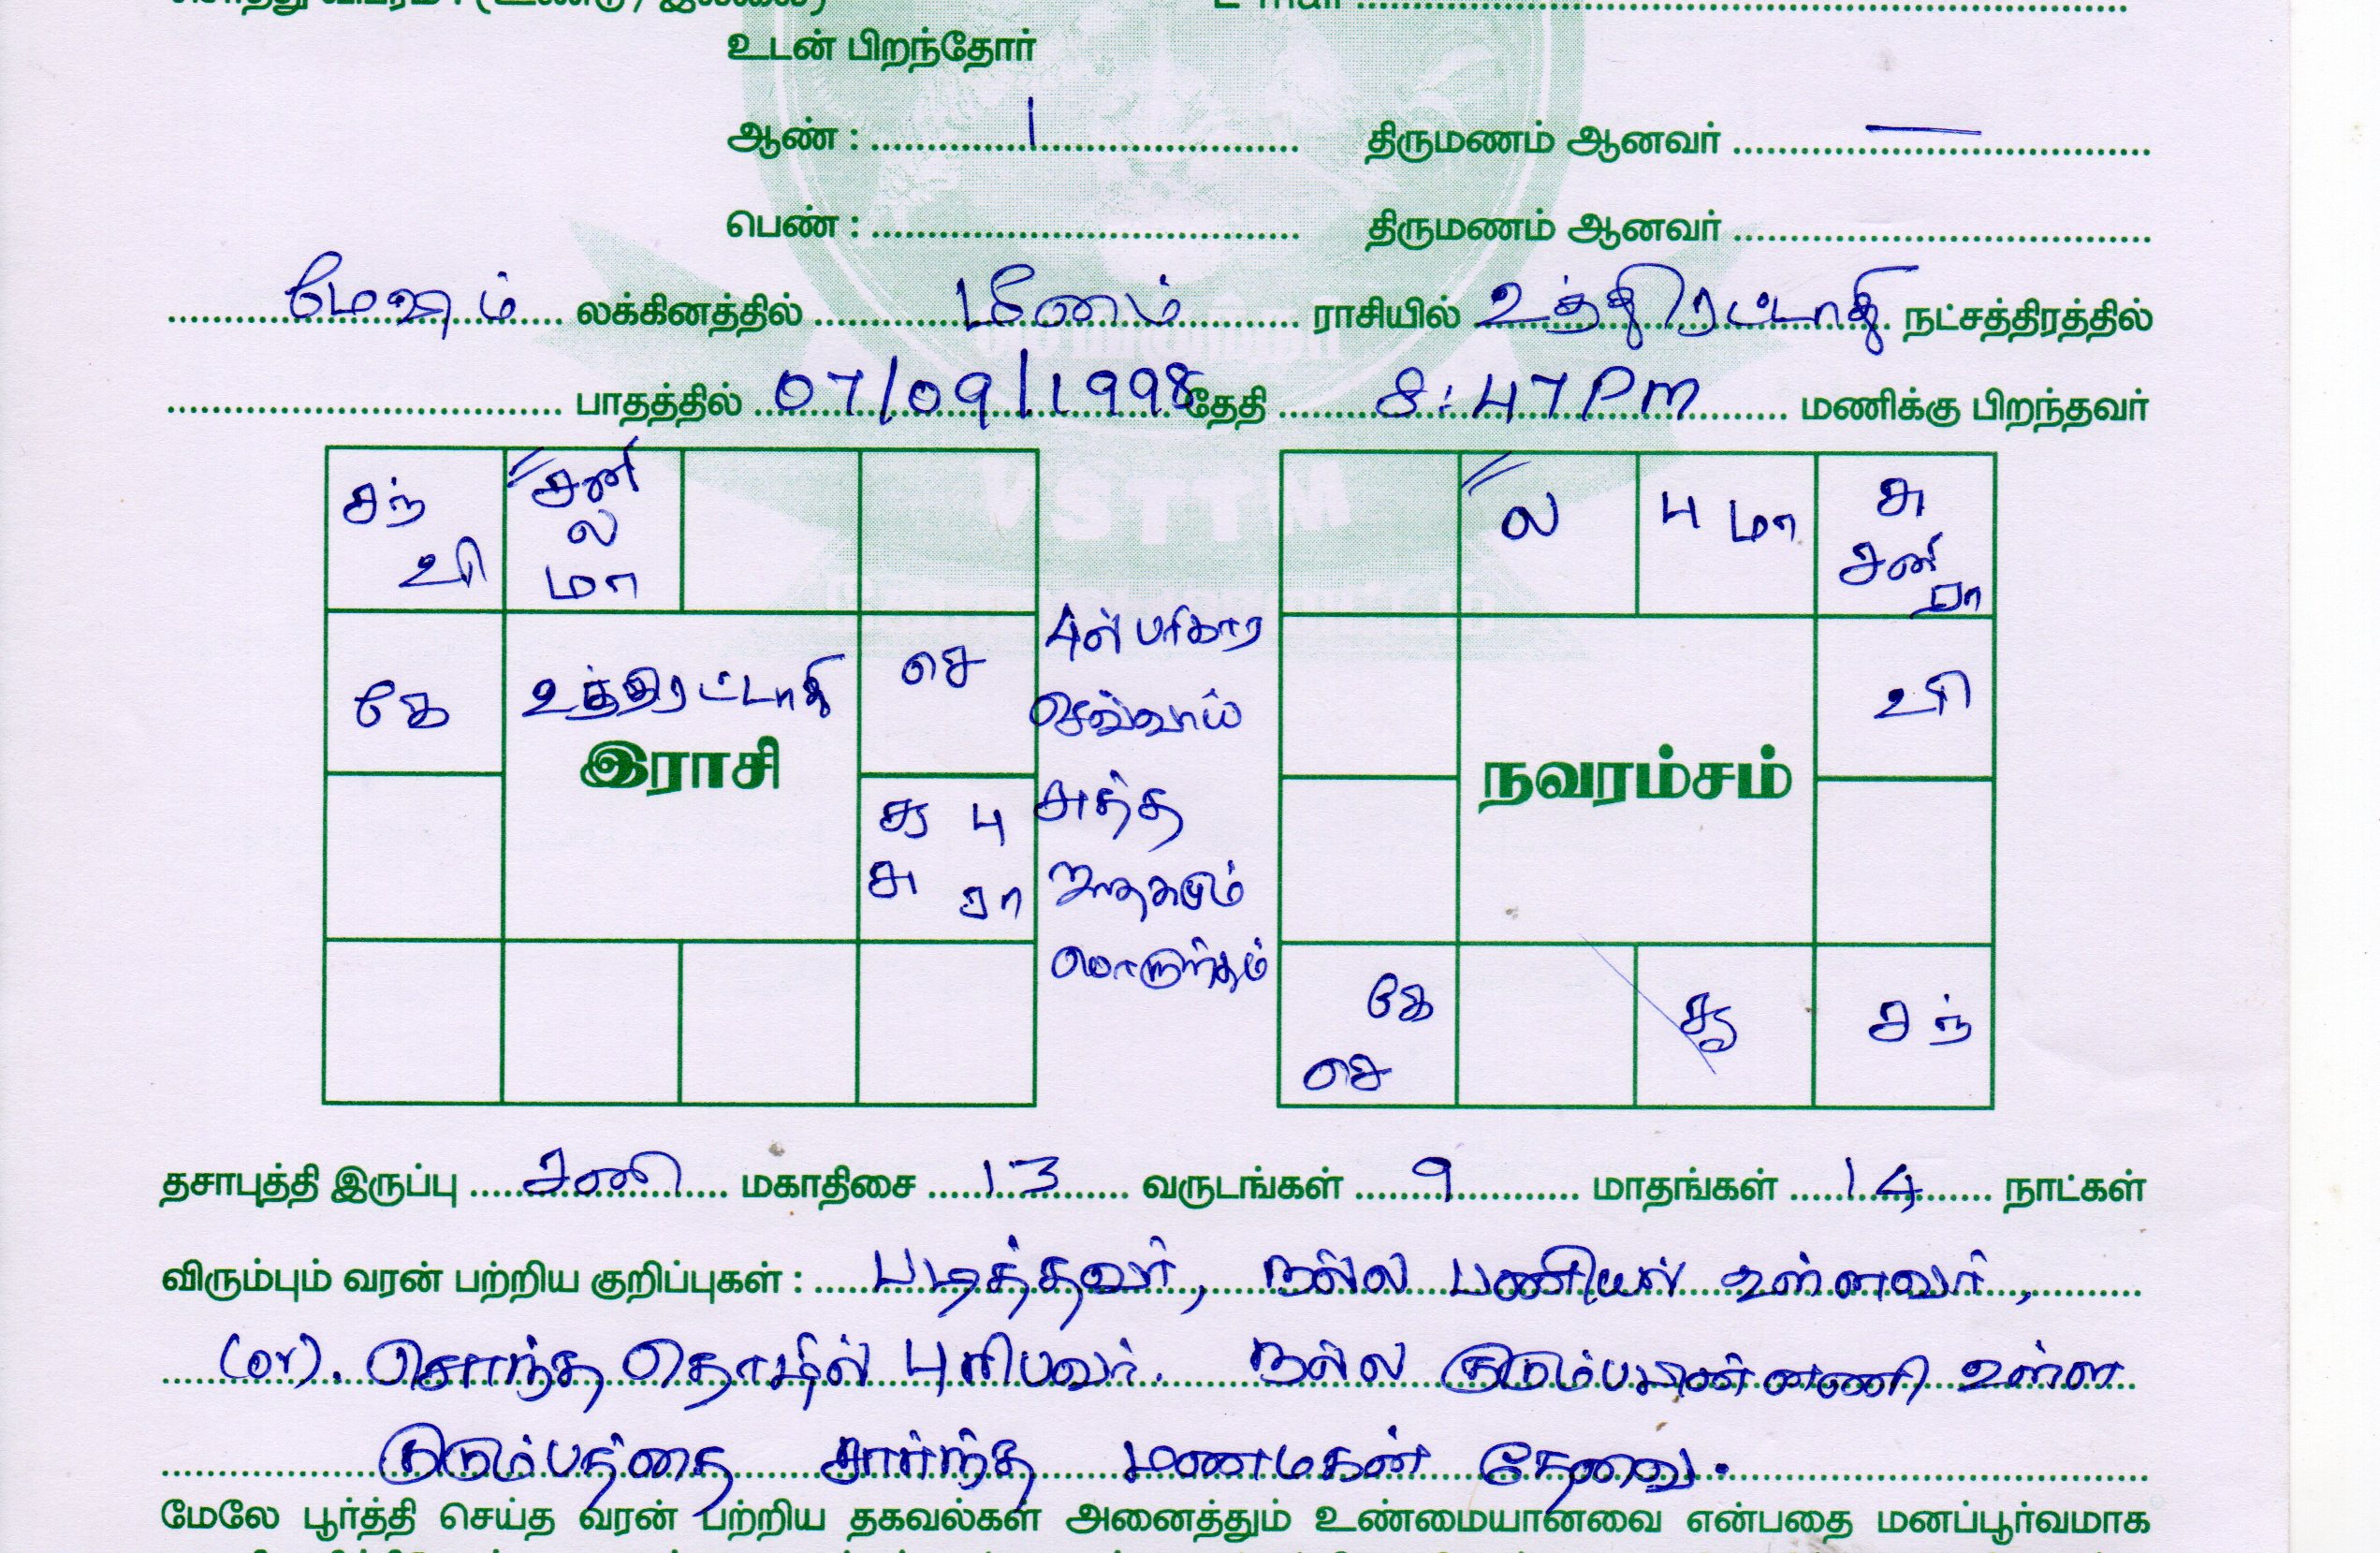 உடன் பிறந்தோர்
ஆண் : 1 திருமணம் ஆனவர் —
பெண் : திருமணம் ஆனவர்
மேஷம் லக்கினத்தில் மீனம் ராசியில் உத்திரட்டாதி நட்சத்திரத்தில்
பாதத்தில் 07/09/1998 தேதி 8:47 Pm மணிக்கு பிறந்தவர்
சந் வி
சனி ல மா
கே
உத்திரட்டாதி
இராசி
செ
சு பு
சு ரா
4ல் பரிகார
செவ்வாய்
சுத்த
ஜாதகமும்
பொருந்தும்
ல
பு மா
சு சனி ரா
வி
நவரம்சம்
கே செ
சந்
தசாபுத்தி இருப்பு சனி மகாதிசை 13 வருடங்கள் 9 மாதங்கள் 14 நாட்கள்
விரும்பும் வரன் பற்றிய குறிப்புகள் : படித்தவர், நல்ல பணியில் உள்ளவர்,
(or). சொந்த தொழில் புரிபவர். நல்ல குடும்பபின்னணி உள்ள
குடும்பத்தை சார்ந்த மணமகன் தேவை.
மேலே பூர்த்தி செய்த வரன் பற்றிய தகவல்கள் அனைத்தும் உண்மையானவை என்பதை மனப்பூர்வமாக